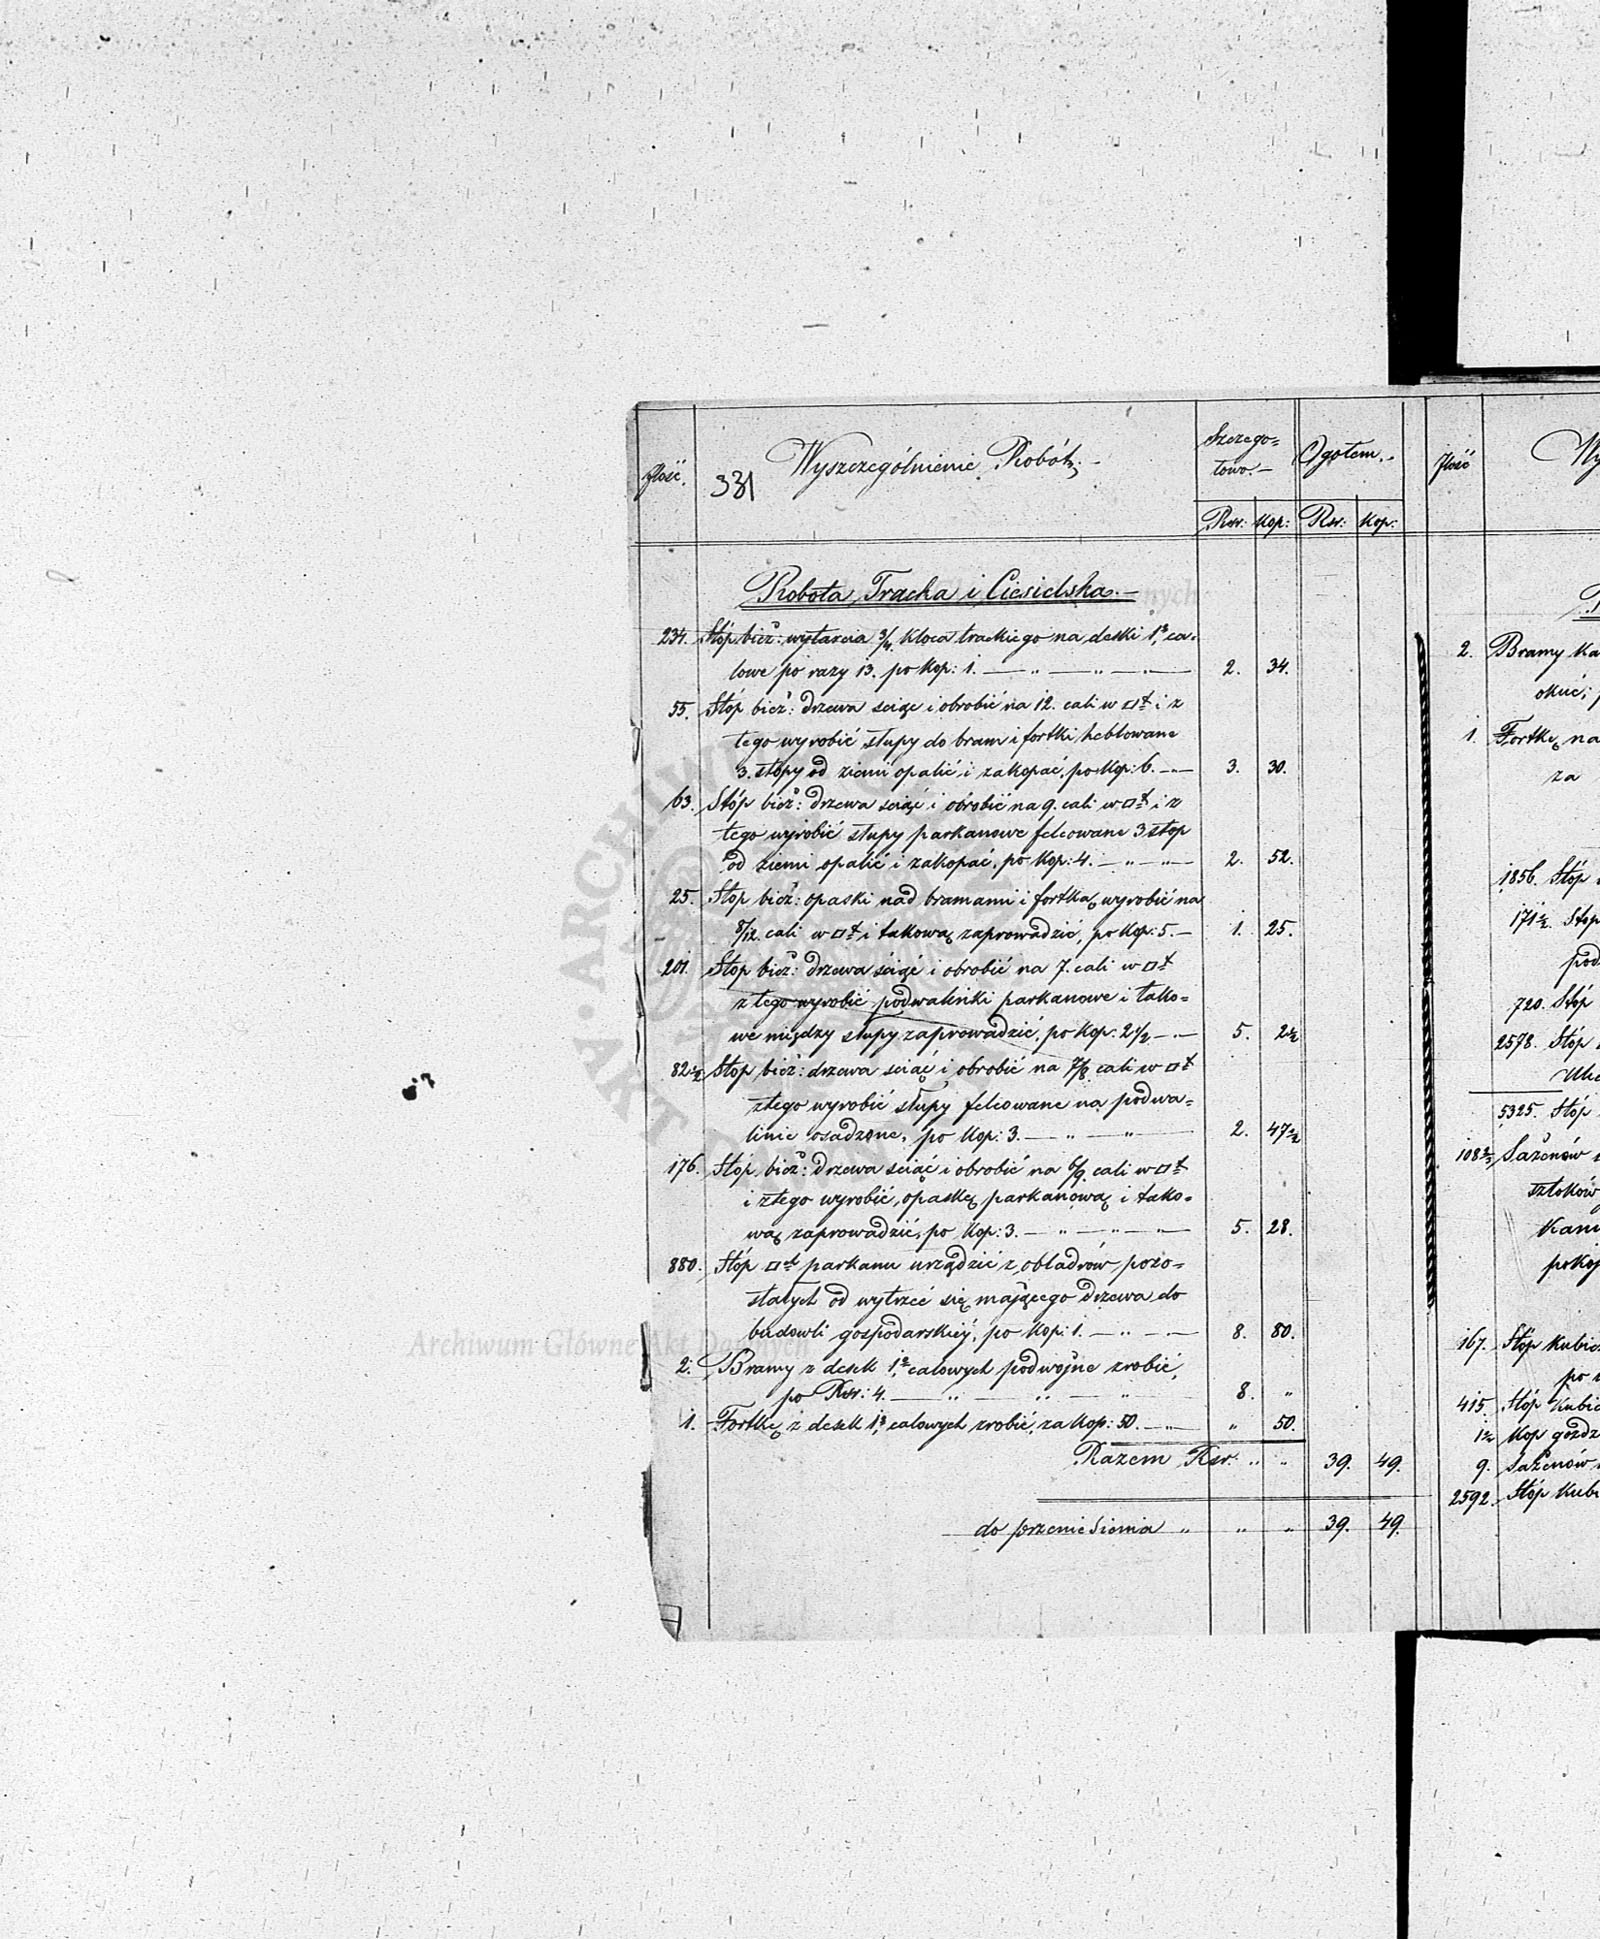 Ilość.
331
Wyszczególnienie Robót.
Szczegó=
łowo.
Ogółem.
Rsr: Kop: Rsr: Kop:
Robota Tracka i Ciesielska.
234. Stóp bież: wytarcia 3/4 kloca trackiego na deski ca=
lowe po razy 13. po Kop: 1. — „ — „ — 2. 34.
55. Stóp bież: drzewa ściąć i obrobić na 12. cali w □t i z
tego wyrobić słupy do bram i fortki heblowane
3. stopy od ziemi opalić i zakopać, po Kop: 6. — 3. 30.
63. Stóp bież: drzewa ściąć i obrobić na 9. cali w □t i z
tego wyrobić słupy parkanowe felcowane 3 stop
od ziemi opalić i zakopać, po Kop: 4. — „ — 2. 52.
25. Stóp bież: opaski nad bramami i fortką wyrobić na
8/12. cali w □t i takową zaprowadzić, po Kop: 5. — 1. 25.
201. Stóp bież: drzewa ściąć i obrobić na 7. cali w □t
z tego wyrobić podwalinki parkanowe i tako=
we między słupy zaprowadzić, po Kop: 2 1/2 — 5. 2 1/2
82 1/2 Stóp bież: drzewa ściąć i obrobić na 7/8. cali w □t
z tego wyrobić słupy felcowane na podwa=
linie osadzone, po Kop: 3. — „ — „ — 2. 47 1/2
176. Stóp bież: drzewa ściąć i obrobić na 6/9. cali w □t
i z tego wyrobić opaskę parkanową i tako=
wą zaprowadzić, po Kop: 3. — „ — „ — „ — 5. 28.
880. Stóp □t parkanu urządzić z obladrów pozo=
stałych od wytrzeć się mającego drzewa do
budowli gospodarskiéj, po Kop: 1. — „ — 8. 80.
2. Bramy z desek calowych podwójne zrobić,
po Rsr: 4. — „ — „ — „ — 8. „
1. Fortkę z desek calowych zrobić, za Kop: 50. — „ 50.
Razem Rsr: „ „ 39. 49.
do przeniesienia „ „ „ 39. 49.
Ilość
Wy
2. Bramy
okuć;
1. Fortkę na
za
1856. Stóp
171 1/2. Stóp
pod
720. Stóp
2578. Stóp
5325. Stóp
Sażenów
sztoków
pokoj
167. Stóp Kubic
po
415. Stóp Kubic
Kop goździ
9. Sażenów
2592. Stóp Kubi
Archiwum Główne Akt Dawnych